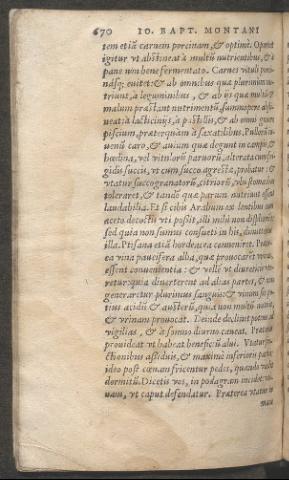 670 IO. BAPT. MONTANI
tem etiā carnem porcinam, & optimè. Oportet
igitur vt abstineat à multū nutrientibus, & à
pane non bene fermentato. Carnes vituli
& ab omnibus quæ plurimum nu-
triunt, à leguminibus, & ab ijs quæ multū &
malum præstant nutrimentū summopere absti-
neat: à lacticinijs, à pistillis, & ab omni genere
piscium, præterquam à saxatilibus. Pullorū iu-
uenū caro, & auium quæ degunt in campis, &
hœdina, vel vitulorū paruorū, alterata cum fri-
gidis succis, vt cum succo agrestæ, probatur: &
vtatur succo granatorū, citriorū, vbi stomachus
toleraret, & tandē quæ parum nutriunt essent
laudabilia. Et si cibis Arabum ex lentibus cum
aceto decoctis vti possit, illi mihi non displicent,
sed quia non sumus consueti in his, dimittamus
illa. Ptisana etiā hordeacea conueniret. Præter-
ea vina paucifera alba, quæ prouocaret vrinam
essent conuenientia: & vellē vt diuretica vte-
retur: quia diuerterent ad alias partes, & non
generaretur plurimus sanguis: & vinum sit po-
tius acidū & austerū, quia non multū nutrit,
& vrinam prouocat. Deinde declinet potius ad
vigilias, & à somno diurno caueat. Præterea
prouideat vt habeat beneficiū alui. Vtatur fri-
ctionibus assiduis, & maximè inferioris partis:
ideo post cœnam fricentur pedes, quando vadit
dormitū. Dicetis vos, in podagram incidet:
vt caput defendatur. Præterea vtatur